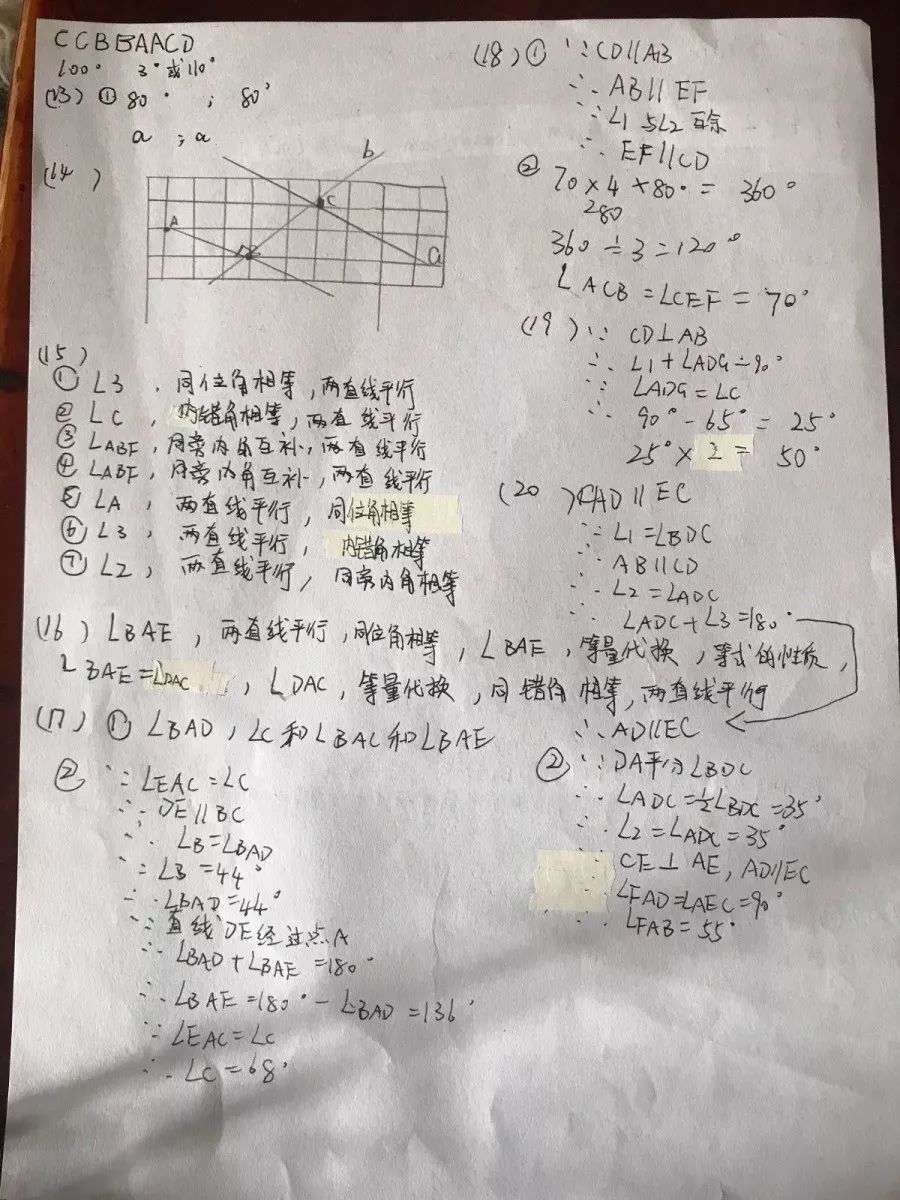 CCBBAACD
100° 3°或110°
(13) ① 80° ; 80°
a ; a
(14)
b
A
C
a
(15)
① ∠3 , 同位角相等 , 两直线平行
② ∠C , 内错角相等 , 两直线平行
③ ∠ABF , 同旁内角互补 , 两直线平行
④ ∠ABF , 同旁内角互补 , 两直线平行
⑤ ∠A , 两直线平行 , 同位角相等
⑥ ∠3 , 两直线平行 , 内错角相等
⑦ ∠2 , 两直线平行 , 同旁内角相等
(16) ∠BAE , 两直线平行 , 同位角相等 , ∠BAE , 等量代换 , 等式的性质 ,
∠BAE=∠DAC , ∠DAC , 等量代换 , 同错角相等 , 两直线平行
(17) ① ∠BAD , ∠C和∠BAC和∠BAE
② ∵ ∠EAC=∠C
∴ DE∥BC
∴ ∠B=∠BAD
∵ ∠B=44°
∴ ∠BAD=44°
∵ 直线DE经过点A
∴ ∠BAD+∠BAE=180°
∴ ∠BAE=180°-∠BAD=136°
∵ ∠EAC=∠C
∴ ∠C=68°
(18) ① ∵ CD∥AB
∴ AB∥EF
∴ ∠1与∠2互余
∴ EF∥CD
② 70×4+80°=360°
280
360÷3=120°
∠ACB=∠CEF=70°
(19) ∵ CD⊥AB
∴ ∠1+∠ADG=90°
∴ ∠ADG=∠C
∴ 90°-65°=25°
25°×2=50°
(20) AD∥EC
∵ ∠1=∠BDC
∴ AB∥CD
∴ ∠2=∠ADC
∴ ∠ADC+∠3=180°
∴ AD∥EC
② ∵ DA平分∠BDC
∴ ∠ADC=½∠BDC=35°
∴ ∠2=∠ADC=35°
∵ CE⊥AE , AD∥EC
∴ ∠FAD=∠AEC=90°
∴ ∠FAB=55°